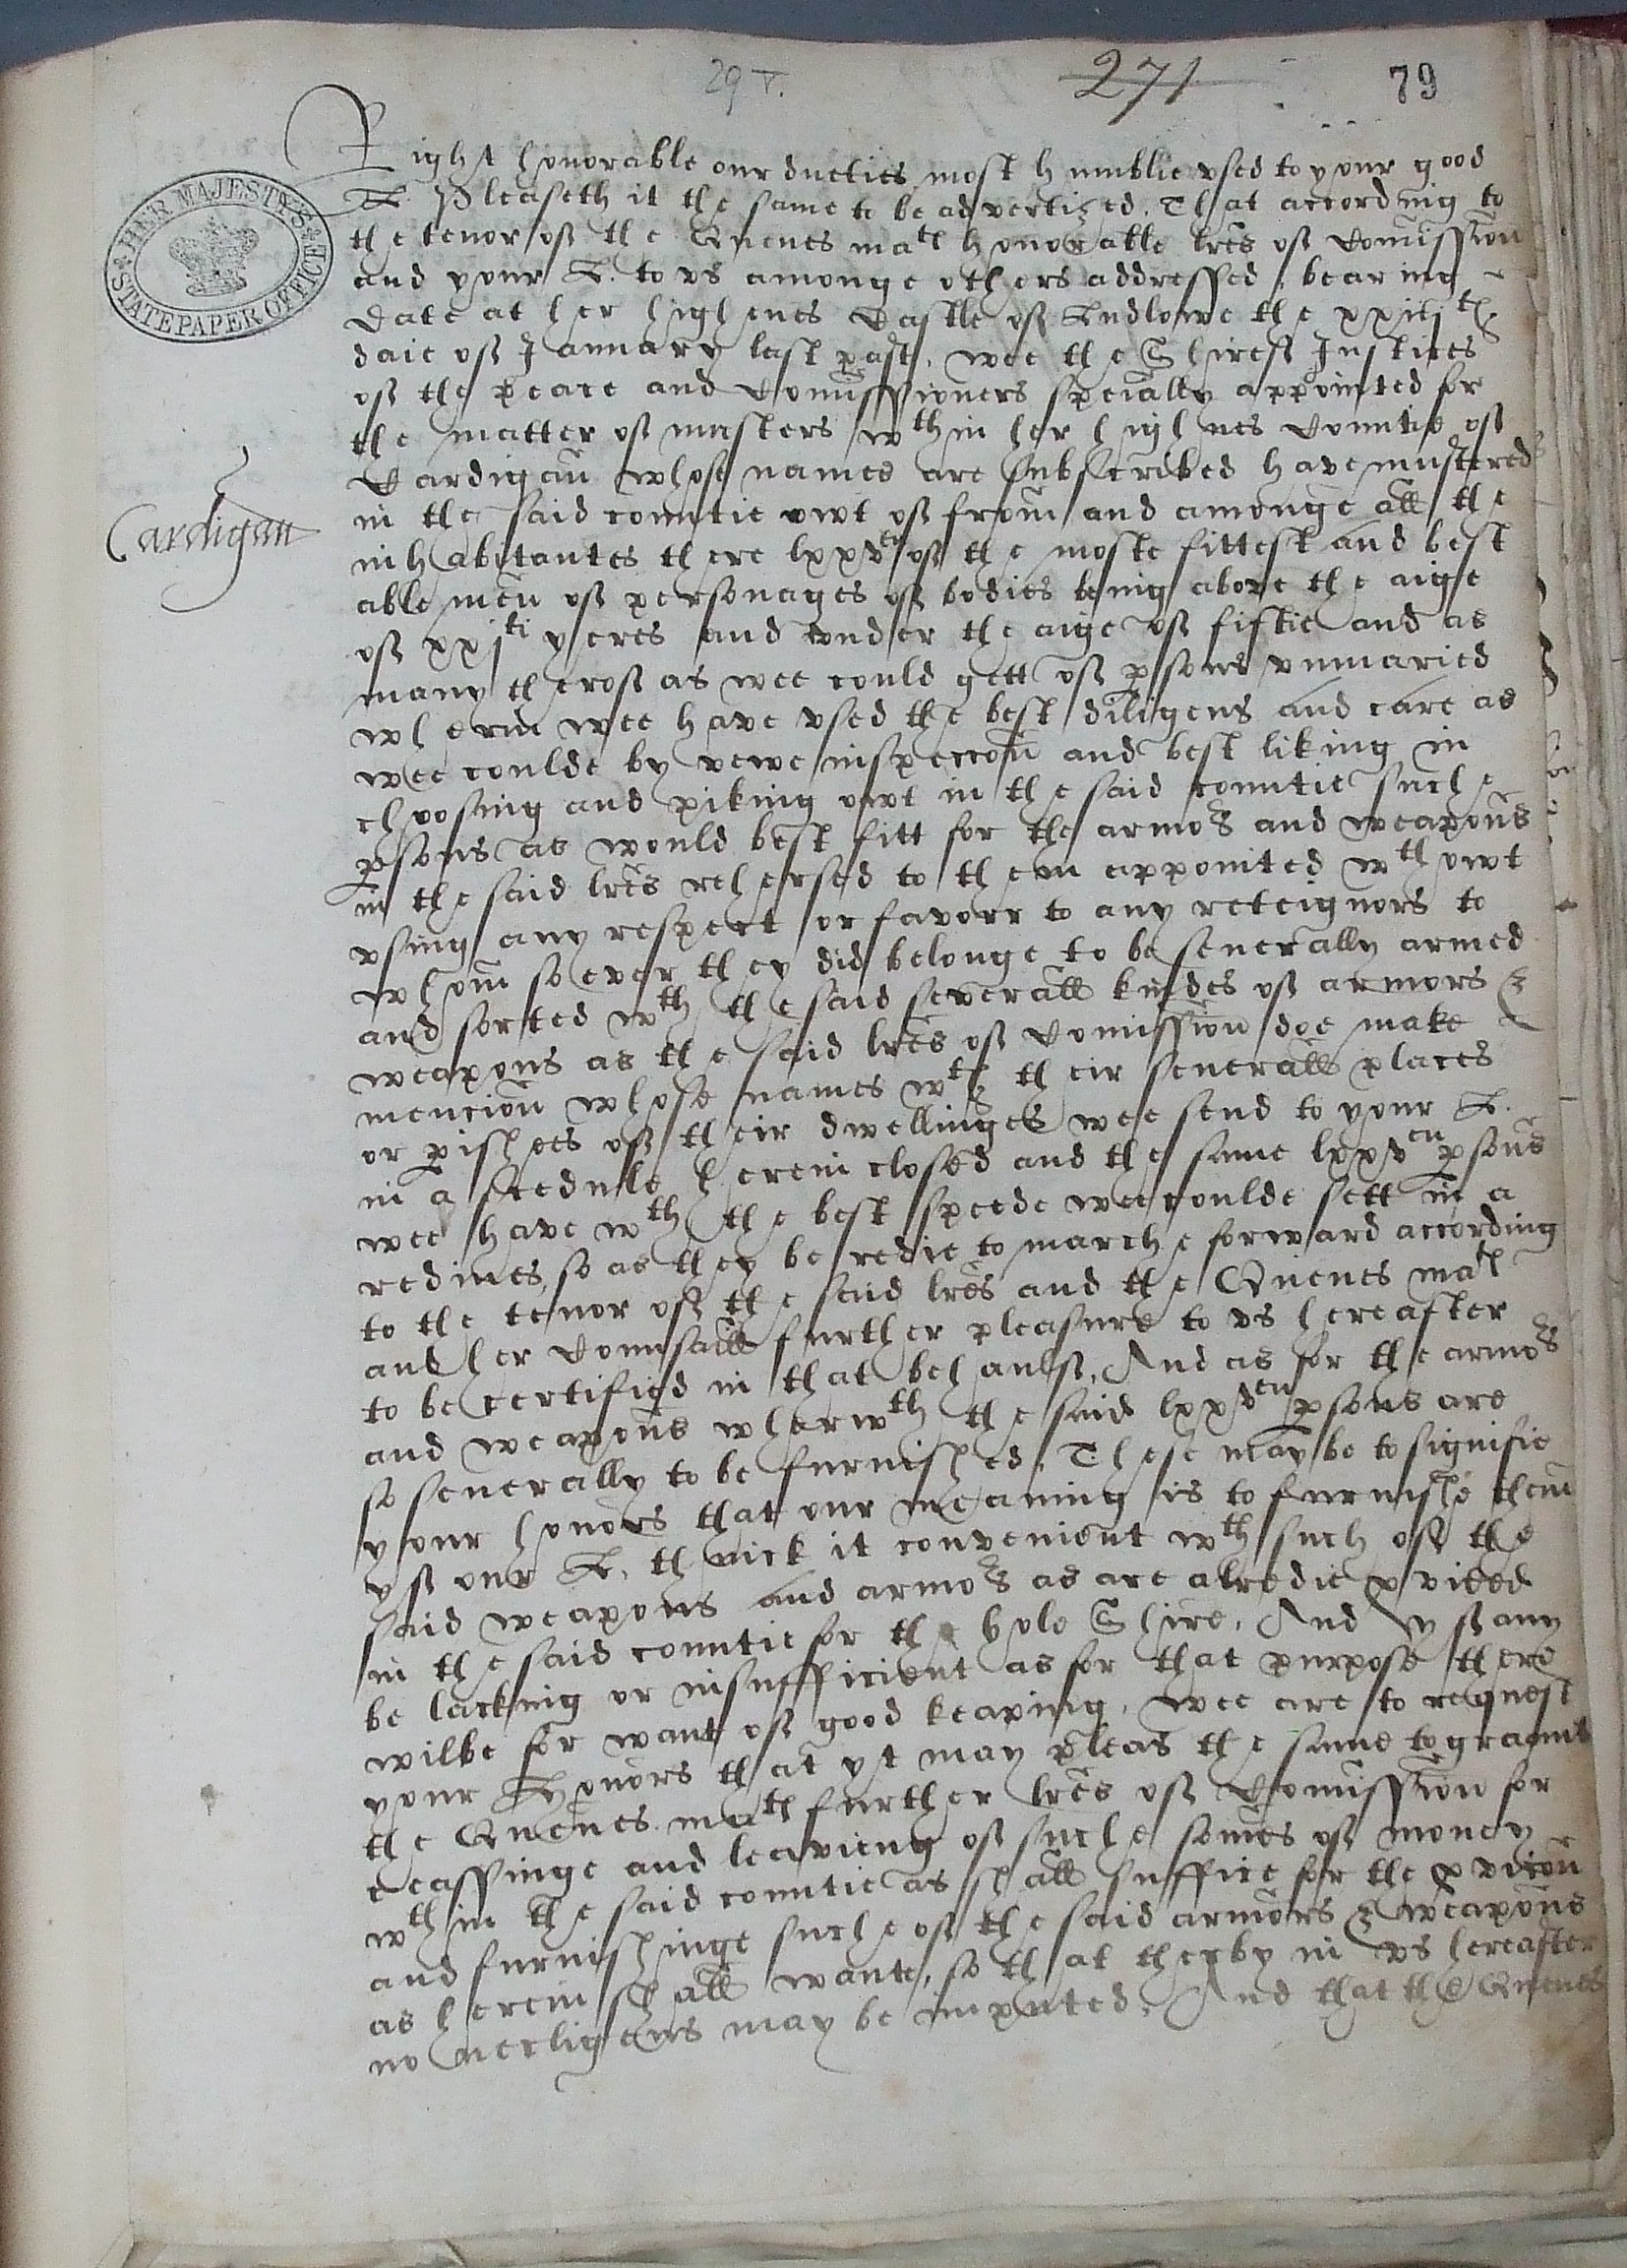 29 v.
271
79
HER MAJESTY'S STATE PAPER OFFICE
Right honorable our dueties most humblie vsed to your good
L. Pleaseth it the same to be advertized. That according to
the tenor of the Quenes matl honorable lres of Comission
and your L. to vs amonge others addressed, bearing
date at her highenes Castle of Ludlowe the xxiiijth
daie of January last past, wee the Shireff Justices
of the peace and Comissioners specially appointed for
the matter of musters wthin her highnes Countie of
Cardigan whose names are subscribed have mustered
Cardigan
in the said countie owt of from and amonge all the
inhabitantes there lxxven of the moste fittest and best
able men of personages of bodies being above the aige
of xxjti yeres and vnder the aige of fiftie and as
many therof as wee could gett of psons vnmaried
wherin wee have vsed the best diligens and care as
wee coulde by vewe inspeccon and best liking in
choosing and piking owt in the said countie suche
psons as would best fitt for the armors and weapons
in the said lres rehersed to them appointed wthowt
vsing any respect or favorr to any reteignors to
whom soever they did belonge to be seuerally armed
and sorted wth the said severall kindes of armors &
weapons as the said lres of Comission doe make
mencion whose names wth their seuerall places
or pishees of their dwellinges wee send to your L.
in a scedule herein closed and the same lxxven psons
wee have wth the best speede wee coulde sett in a
redines, so as they be redie to marche forward according
to the tenor of the said lres and the Quenes matl
and her Counsaill further pleasure to vs hereafter
to be certified in that behaulf. And as for the armors
and weapons wherwth the said lxxven psons are
so seuerally to be furnished. These may be to signifie
your honors that our meaning is to furnishe them
yf our L. thinck it convenient wth such of the
said weapons and armors as are alredie pvided
in the said countie for the hole Shire. And yf any
be lacking or insufficient as for that purpose there
wilbe for want of good keaping, wee are to request
your Honors that yt may pleas the same to graunt
the Quenes matl further lres of Comission for
ceassinge and leavieng of suche somes of money
wthin the said countie as shall suffice for the pvicon
and furnishinge suche of the said armors & weapons
as herein shall wante, so that therby in vs hereafter
no necligens may be imputed. And that the Quenes